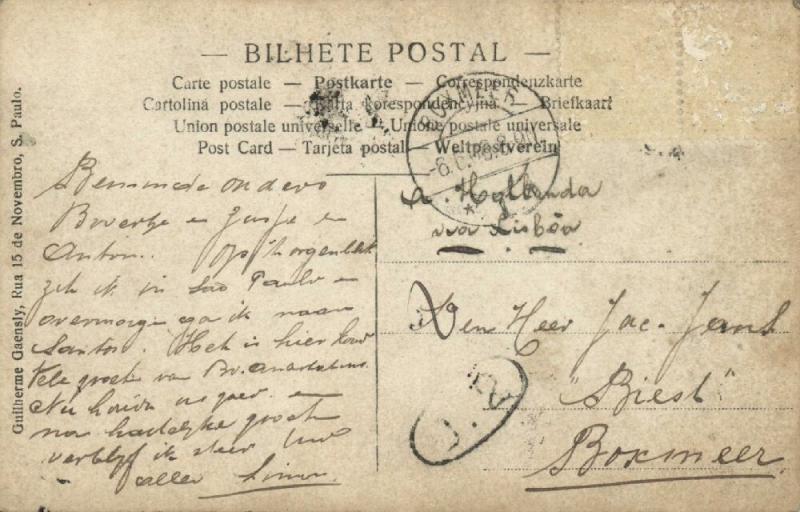 — BILHETE POSTAL —
Carte postale — Postkarte — Correspondenzkarte
Cartolina postale — Karta korespondencyjna — Briefkaart
Union postale universelle — Unione postale universale
Post Card — Tarjeta postal — Weltpostverein
Guilherme Gaensly, Rua 15 de Novembro, S. Paulo.
Beminde ouders
en
Anton. Op 't oogenblik
ik in Sao Paulo en
overmorgen ga ik naar
Santos. Het is hier koud
Vele groet van Br.
Nu houdt u goed en
na hartelijke groet
verblijf ik steeds Uw
aller Simon
BOXMEER
-6.6.
a Hollanda
via Lisbôa
Den Heer Jac. Jans
"Biest"
Boxmeer